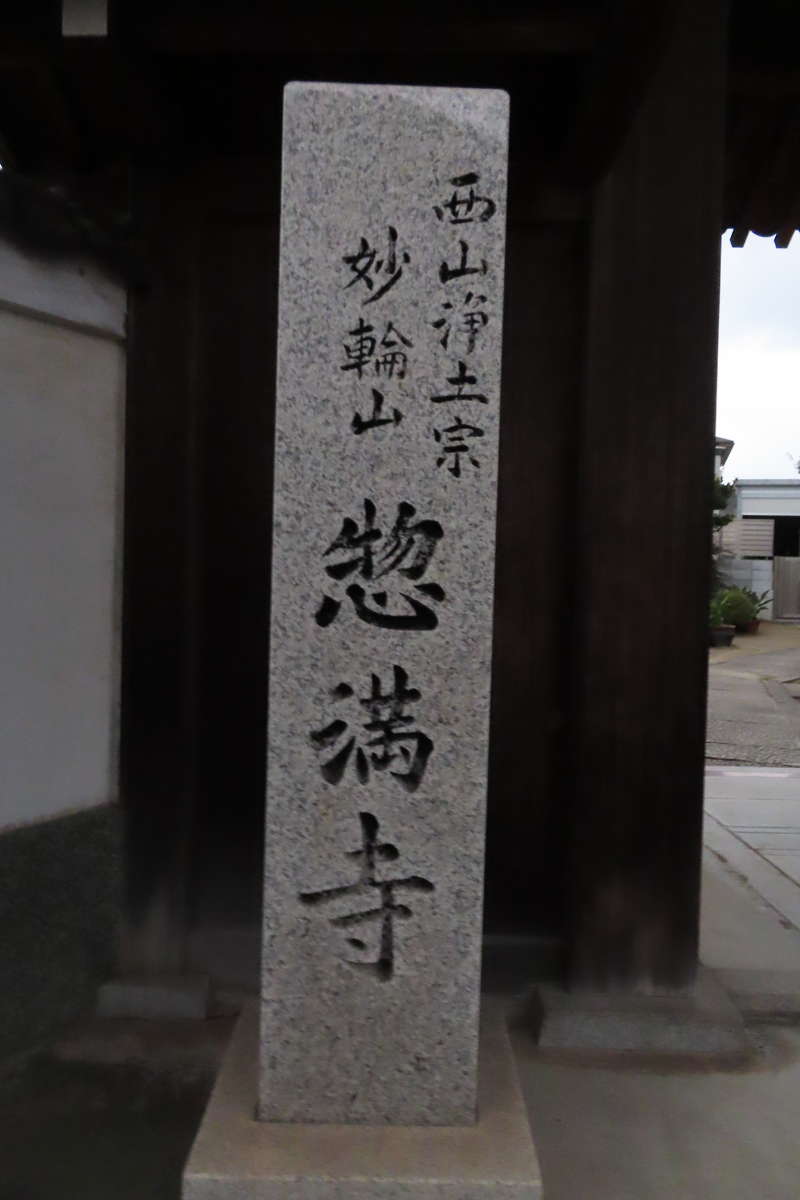 西山浄土宗
妙輪山
惣満寺